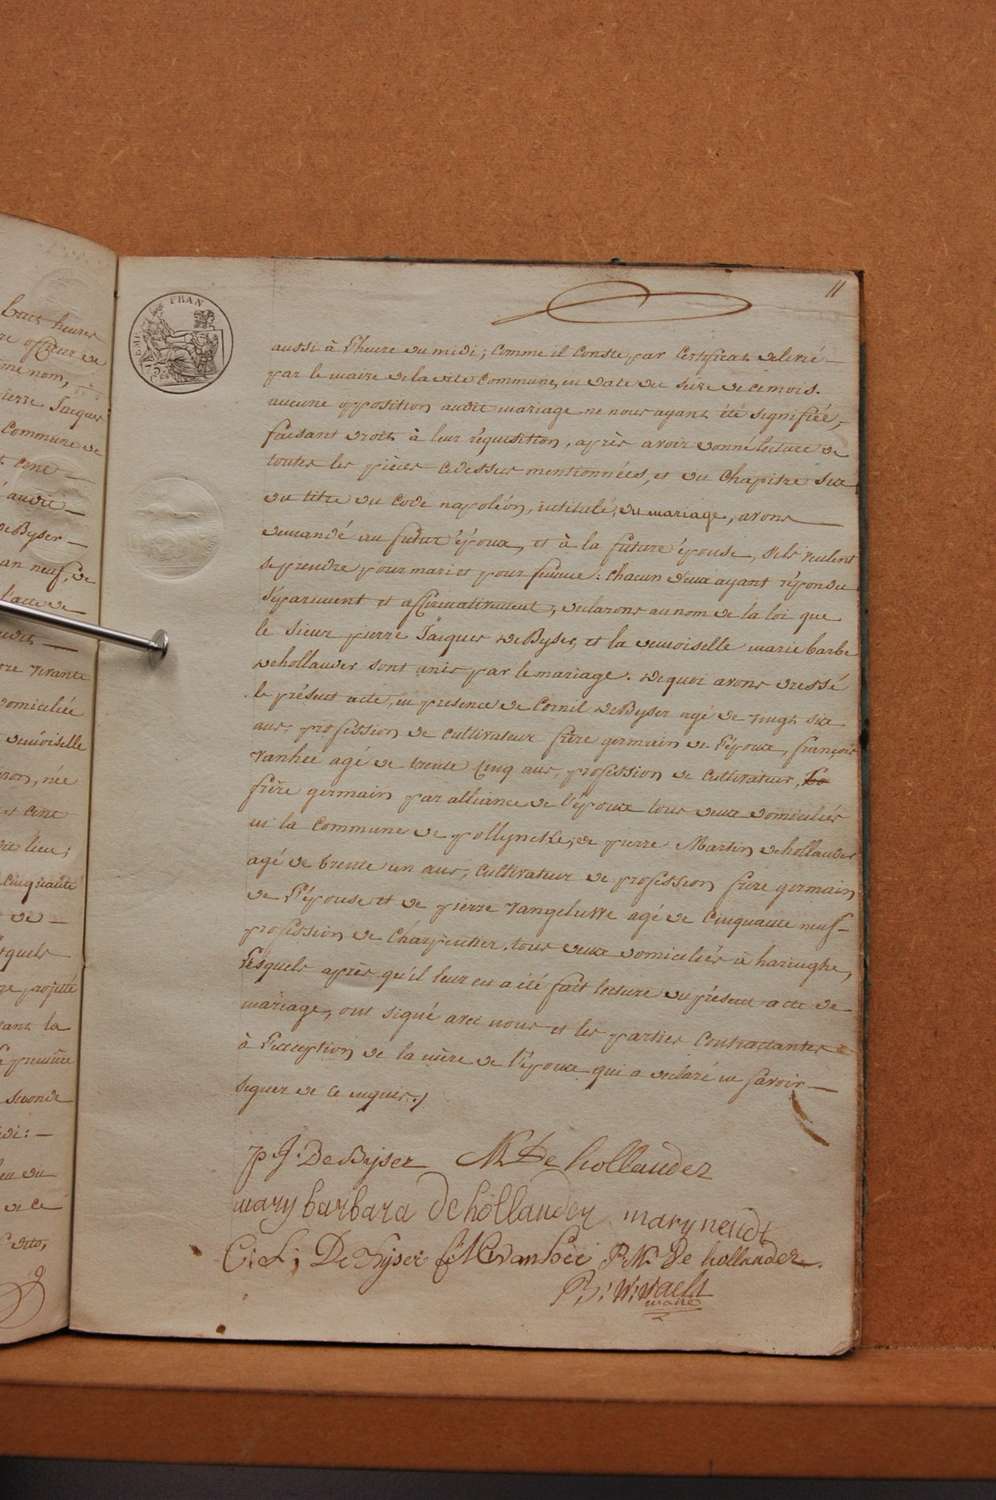 11
FRAN
75
aussi à l'heure du midi; comme il conste par certificat delivré
par le maire de la dite commune, en date du seize de ce mois.
aucune opposition audit mariage ne nous ayant été signifiée,
faisant droit à leur réquisition, après avoir donné lecture de
toutes les pièces cidessus mentionnées, et du chapitre six
du titre du code napoléon, intitulé, du mariage, avons
demandé au futur époux, et à la future épouse, s'ils veulent
se prendre pour mari et pour femme: chacun d'eux ayant répondu
séparement et affirmativement, declarons au nom de la loi que
le sieur pierre Jacques deByser, et la demoiselle marie barbe
dehollander sont unis par le mariage. de quoi avons dressé
le présent acte, en presence de Cornil deByser agé de vingt six
ans, profession de cultivateur frère germain de l'époux, françois
vanhee agé de trente cinq ans, profession de cultivateur,
frère germain par alliance de l'époux tous deux domiciliés
en la commune de pollyncke, de pierre Martin dehollander
agé de trente un ans, cultivateur de profession frère germain
de l'épouse et de pierre vangeluwe agé de cinquante neuf
profession de charpentier, tous deux domiciliés à haringhe,
lesquels après qu'il leur en a été fait lecture du présent acte de
mariage, ont signé avec nous et les parties contractantes
à l'exception de la mère de l'époux qui a declaré ne savoir
signer de ce enquis./
p.J. De Byser M De hollander
mary barbara De hollander mary neudt
C: L; De Byser vanheé P.M. De hollander.
maire
bart heures
pierre Jacques
commune de
cent
audit
deByser
an neuf, de
l'acte de
vivante
domiciliée
demoiselle
née
et cent
dit lieu;
cinquante
de
la
seconde
midi:
du
de ce
dito,